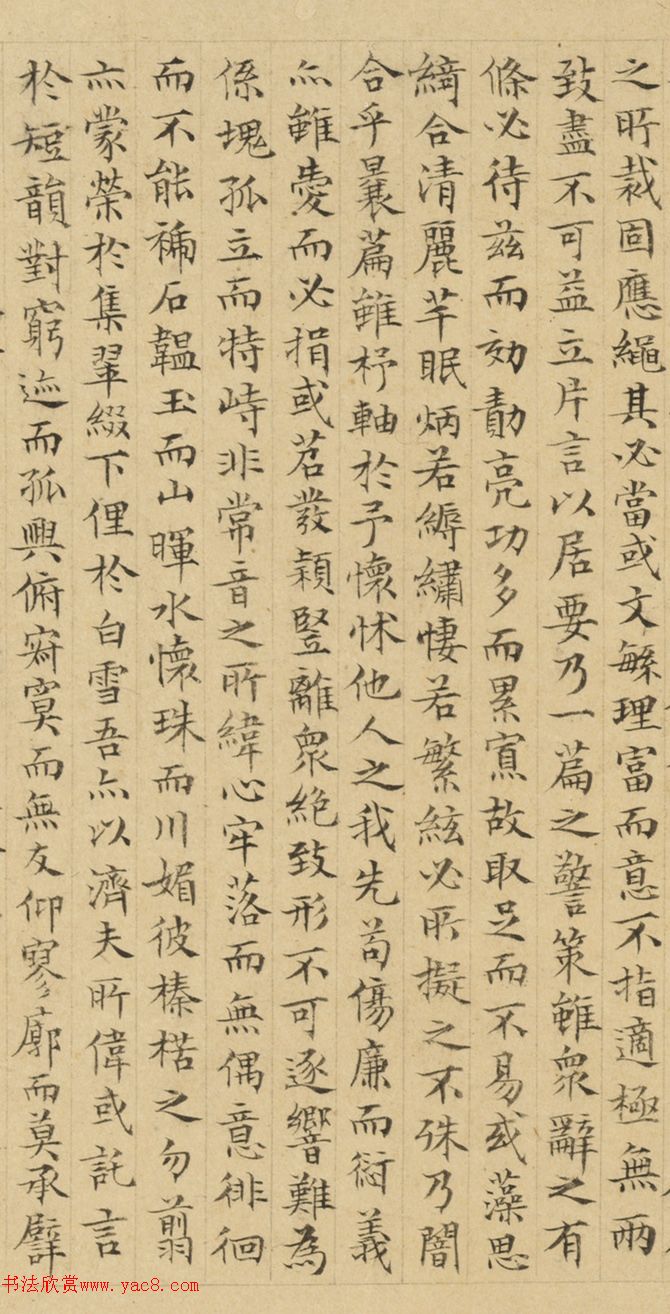 之所裁固應繩其必當或文緐理富而意不指適極無兩
致盡不可益立片言以居要乃一篇之警策雖衆辭之有
條必待茲而効勣亮功多而累寡故取足而不易或藻思
綺合清麗芊眠炳若縟繡悽若繁絃必所擬之不殊乃闇
合乎曩篇雖杼軸於予懷怵他人之我先苟傷廉而愆義
亦雖愛而必捐或苕發穎豎離衆絕致形不可逐響難為
係塊孤立而特峙非常音之所緯心牢落而無偶意徘徊
而不能褫石韞玉而山暉水懷珠而川媚彼榛楛之勿翦
亦蒙榮於集翠綴下俚於白雪吾亦以濟夫所偉或託言
於短韻對窮迹而孤興俯寂寞而無友仰寥廓而莫承譬
书法欣赏www.yac8.com